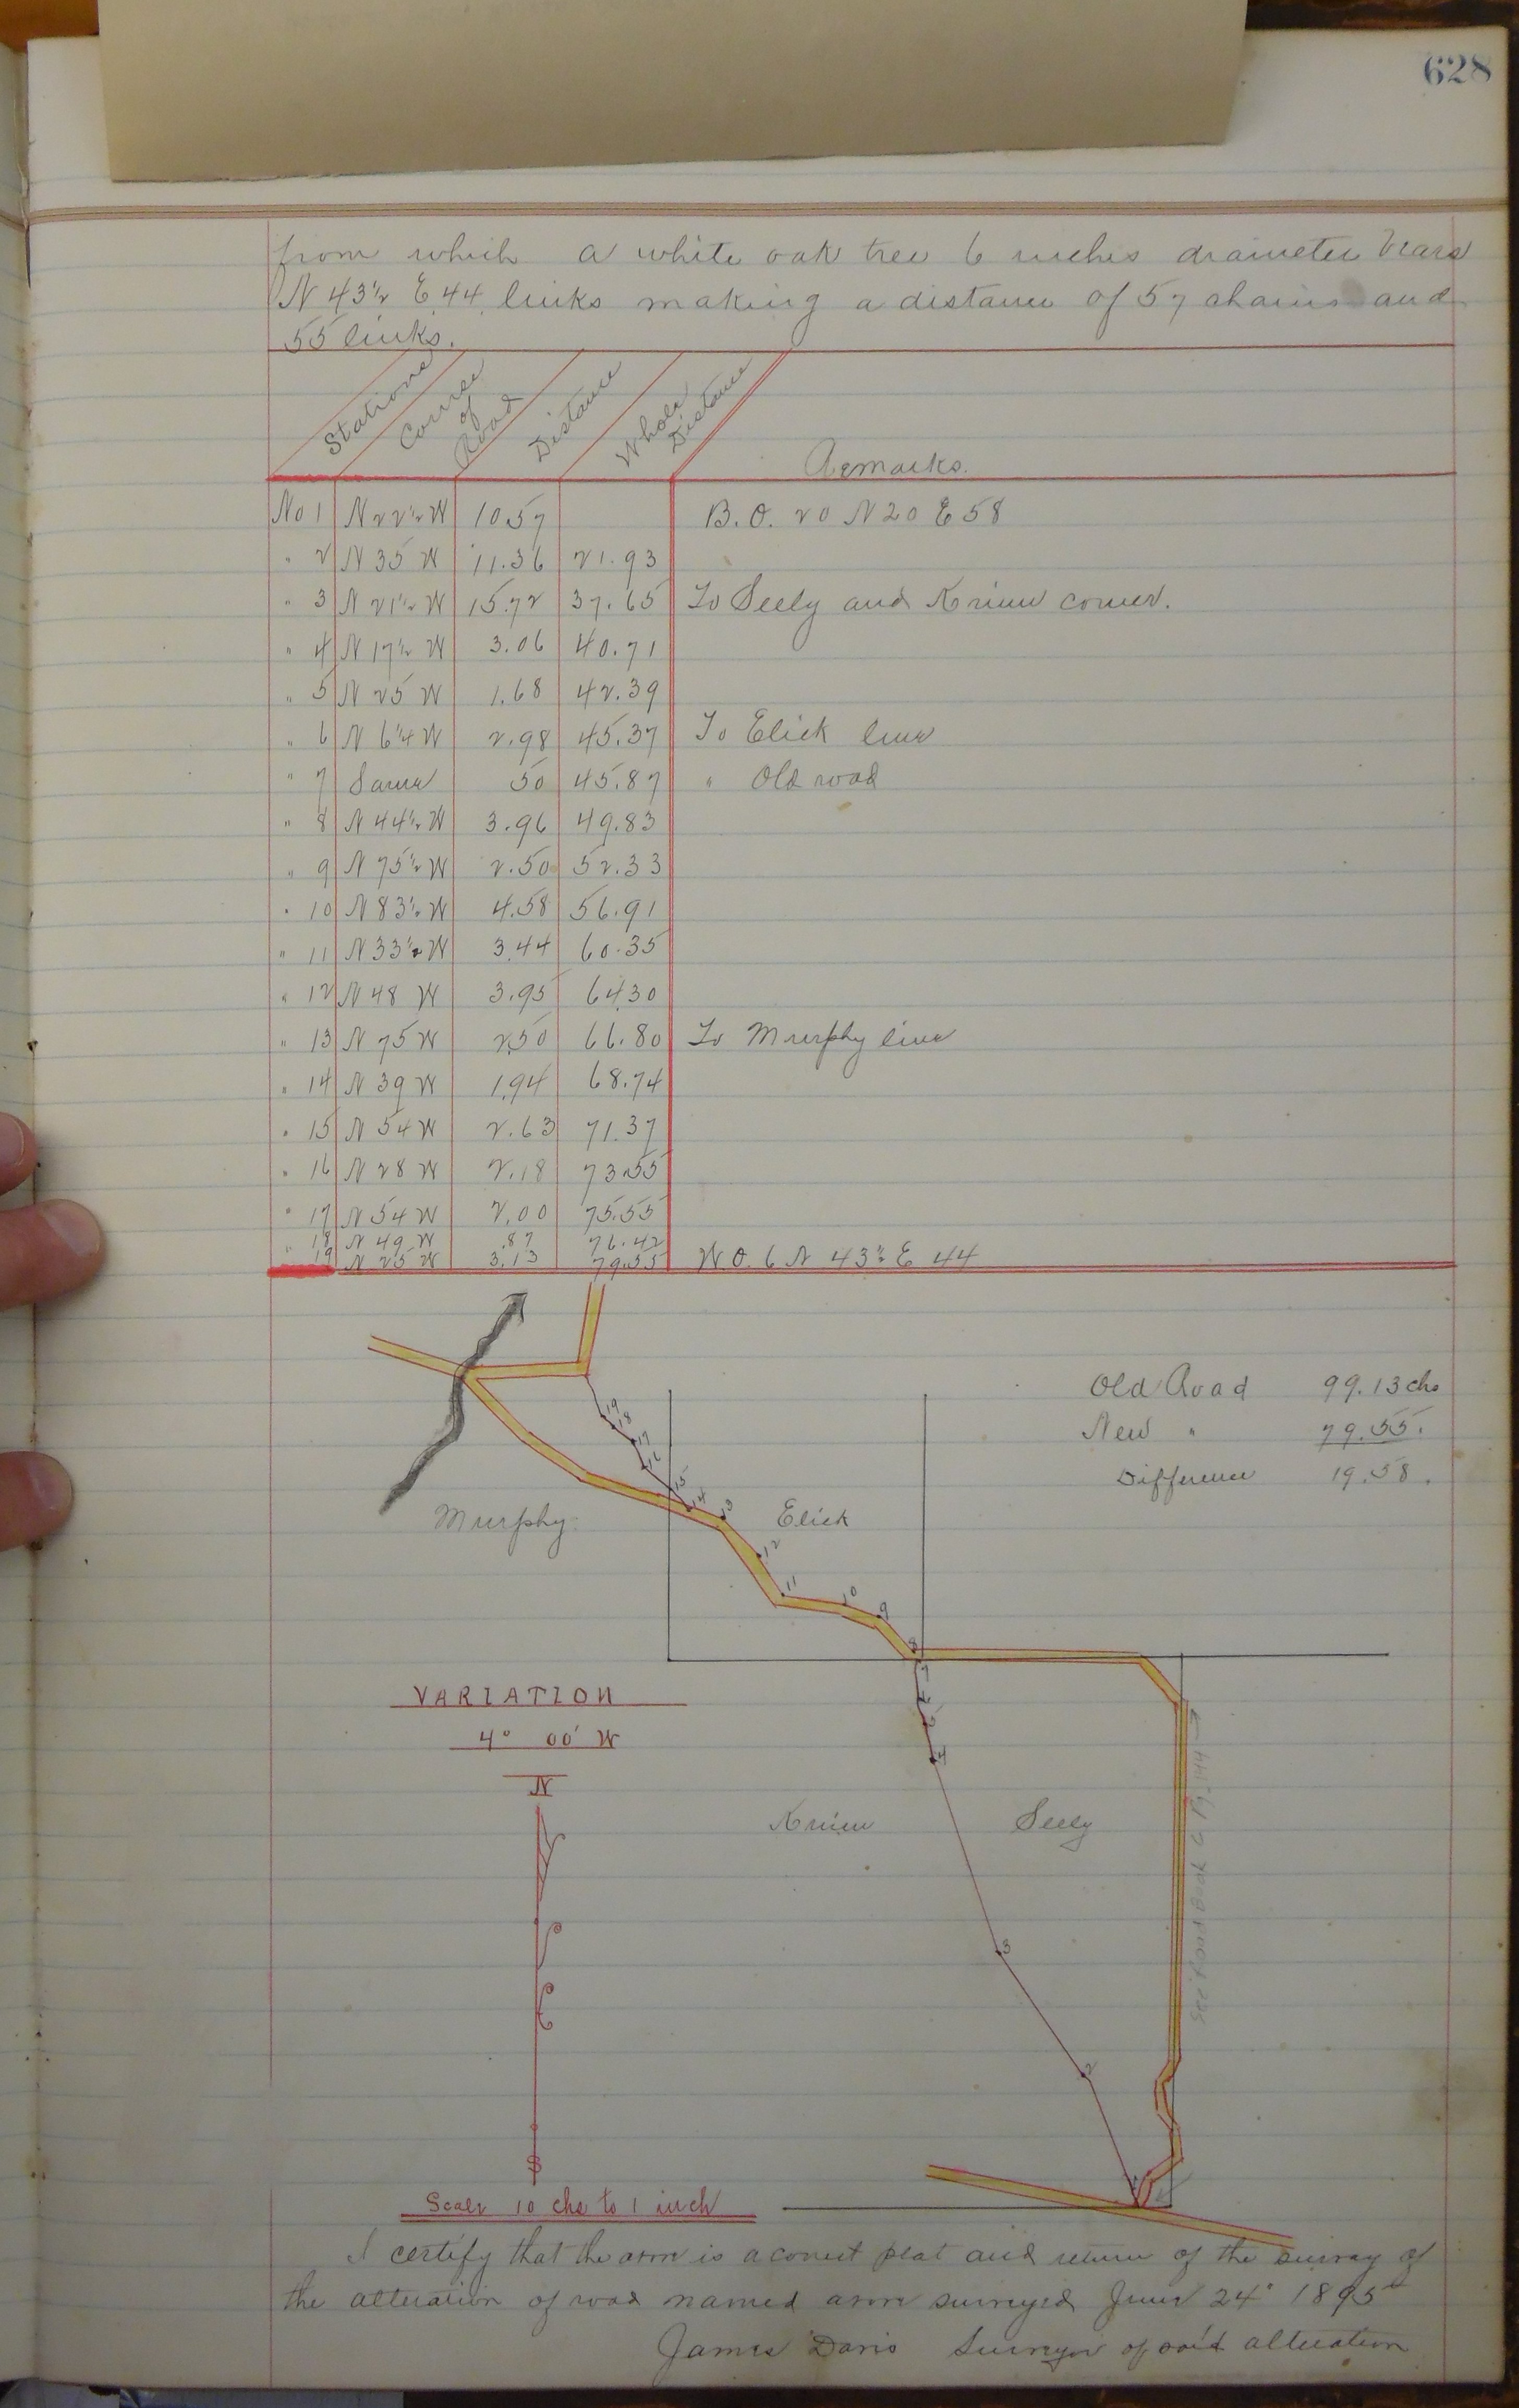 628
from which a white oak tree 6 inches diameter bears
N 43½ E 44 links making a distance of 57 chains and
55 links.
Stations Course of Road Distance Whole Distance Remarks.
No 1 N 22½ W 10.57 B.O. 20 N 20 E 58
" 2 N 35 W 11.36 21.93
" 3 N 21½ W 15.72 37.65 To Seely and Krium corner.
" 4 N 17½ W 3.06 40.71
" 5 N 25 W 1.68 42.39
" 6 N 6¼ W 2.98 45.37 To Elick line
" 7 Same 50 45.87 " Old road
" 8 N 44½ W 3.96 49.83
" 9 N 75½ W 2.50 52.33
" 10 N 83½ W 4.58 56.91
" 11 N 33½ W 3.44 60.35
" 12 N 48 W 3.95 64.30
" 13 N 75 W 2.50 66.80 To Murphy line
" 14 N 39 W 1.94 68.74
" 15 N 54 W 2.63 71.37
" 16 N 28 W 2.18 73.55
" 17 N 54 W 2.00 75.55
" 18 N 49 W .87 76.42
" 19 N 25 W 3.13 79.55 W.O. 6 N 43½ E 44
Old Road 99.13 chs
New " 79.55.
Difference 19.58.
19
18
17
16
15
14
13
12
11
10
9
8
Murphy.
Elick
VARIATION
4° 00' W
N
5
4
Krium
Seely
See Road Book C Pg. 144
3
2
S
Scale 10 chs to 1 inch
I certify that the above is a correct plat and return of the survey of
the alteration of road named above surveyed June 24" 1895
James Davis Surveyor of said alteration